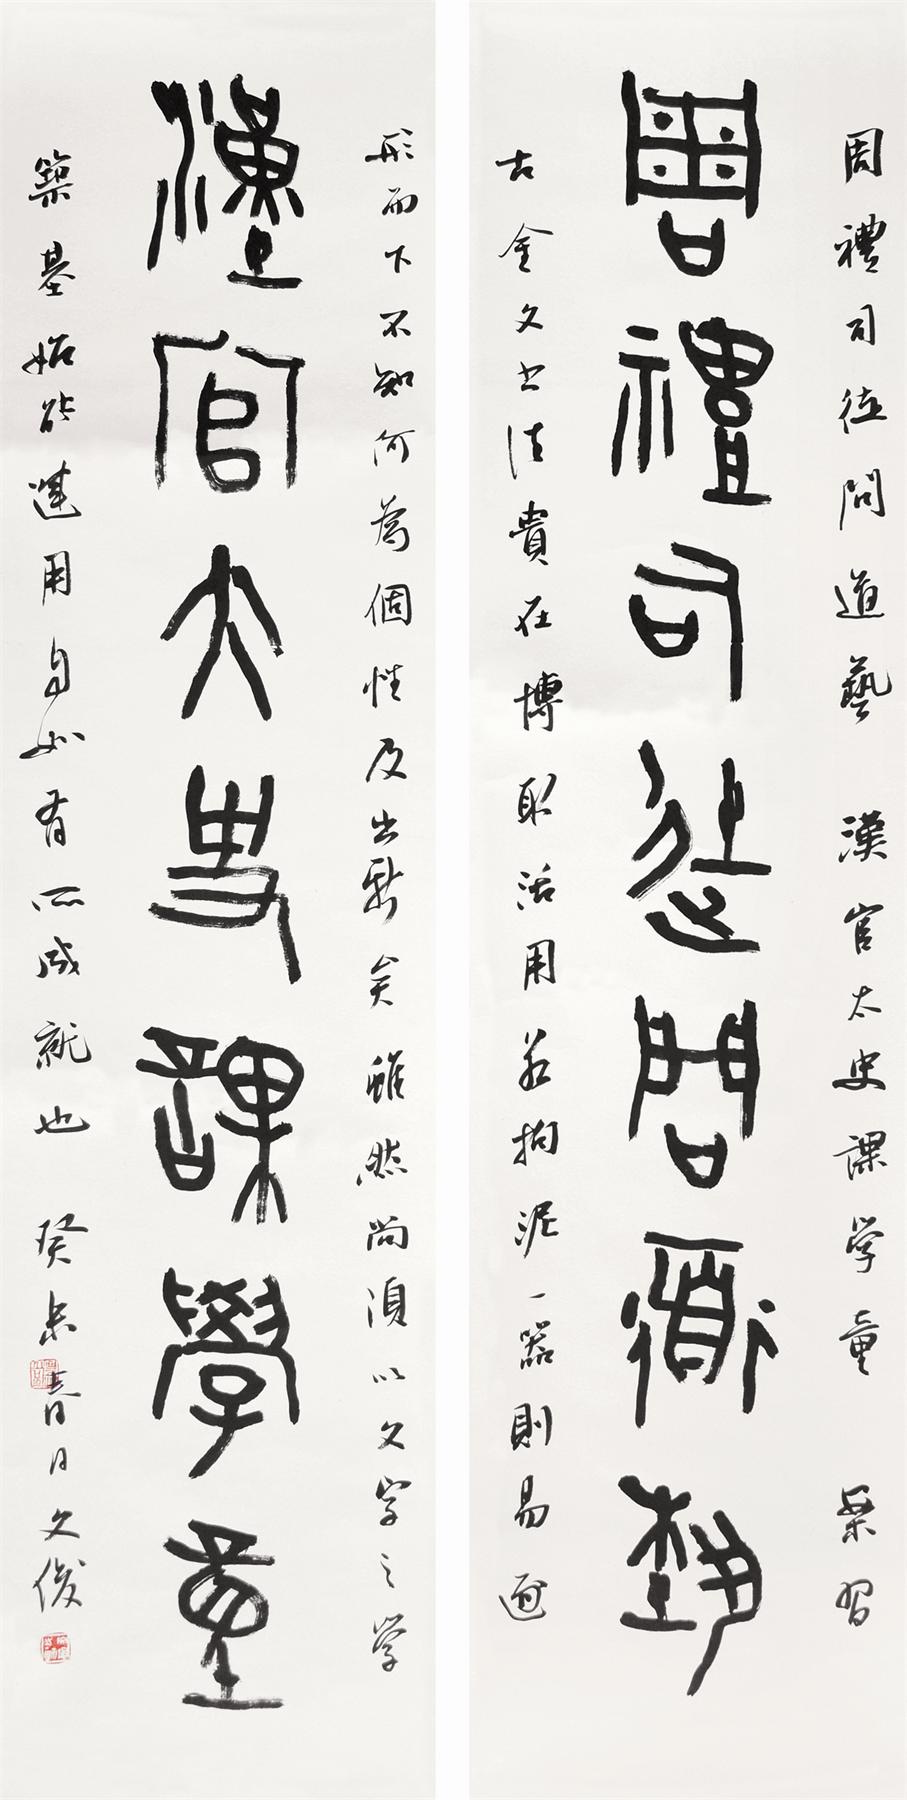 周禮司徒問道藝 漢官太史課学童 習
周禮司徒問道藝
古金文書法貴在博取活用若拘泥一器則易
形而下不知何為個性及出新矣雖然尚須以文字之学
漢官大史課學童
築基始能運用自如有所成就也 癸未春日文俊